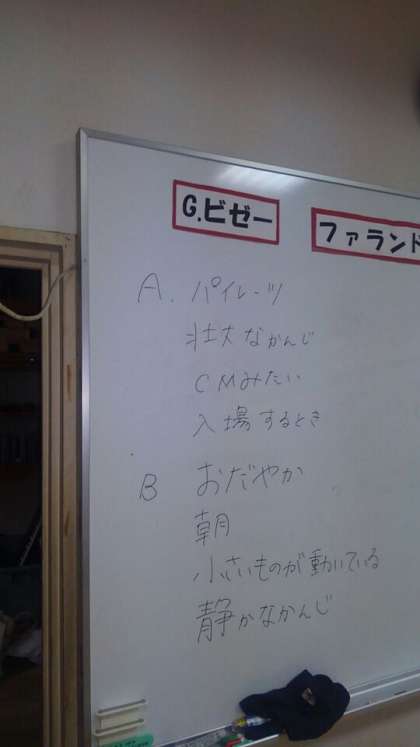 G.ビゼー
ファランド
A. パイレーツ
壮大なかんじ
CMみたい
入場するとき
B おだやか
朝
小さいものが動いている
静かなかんじ